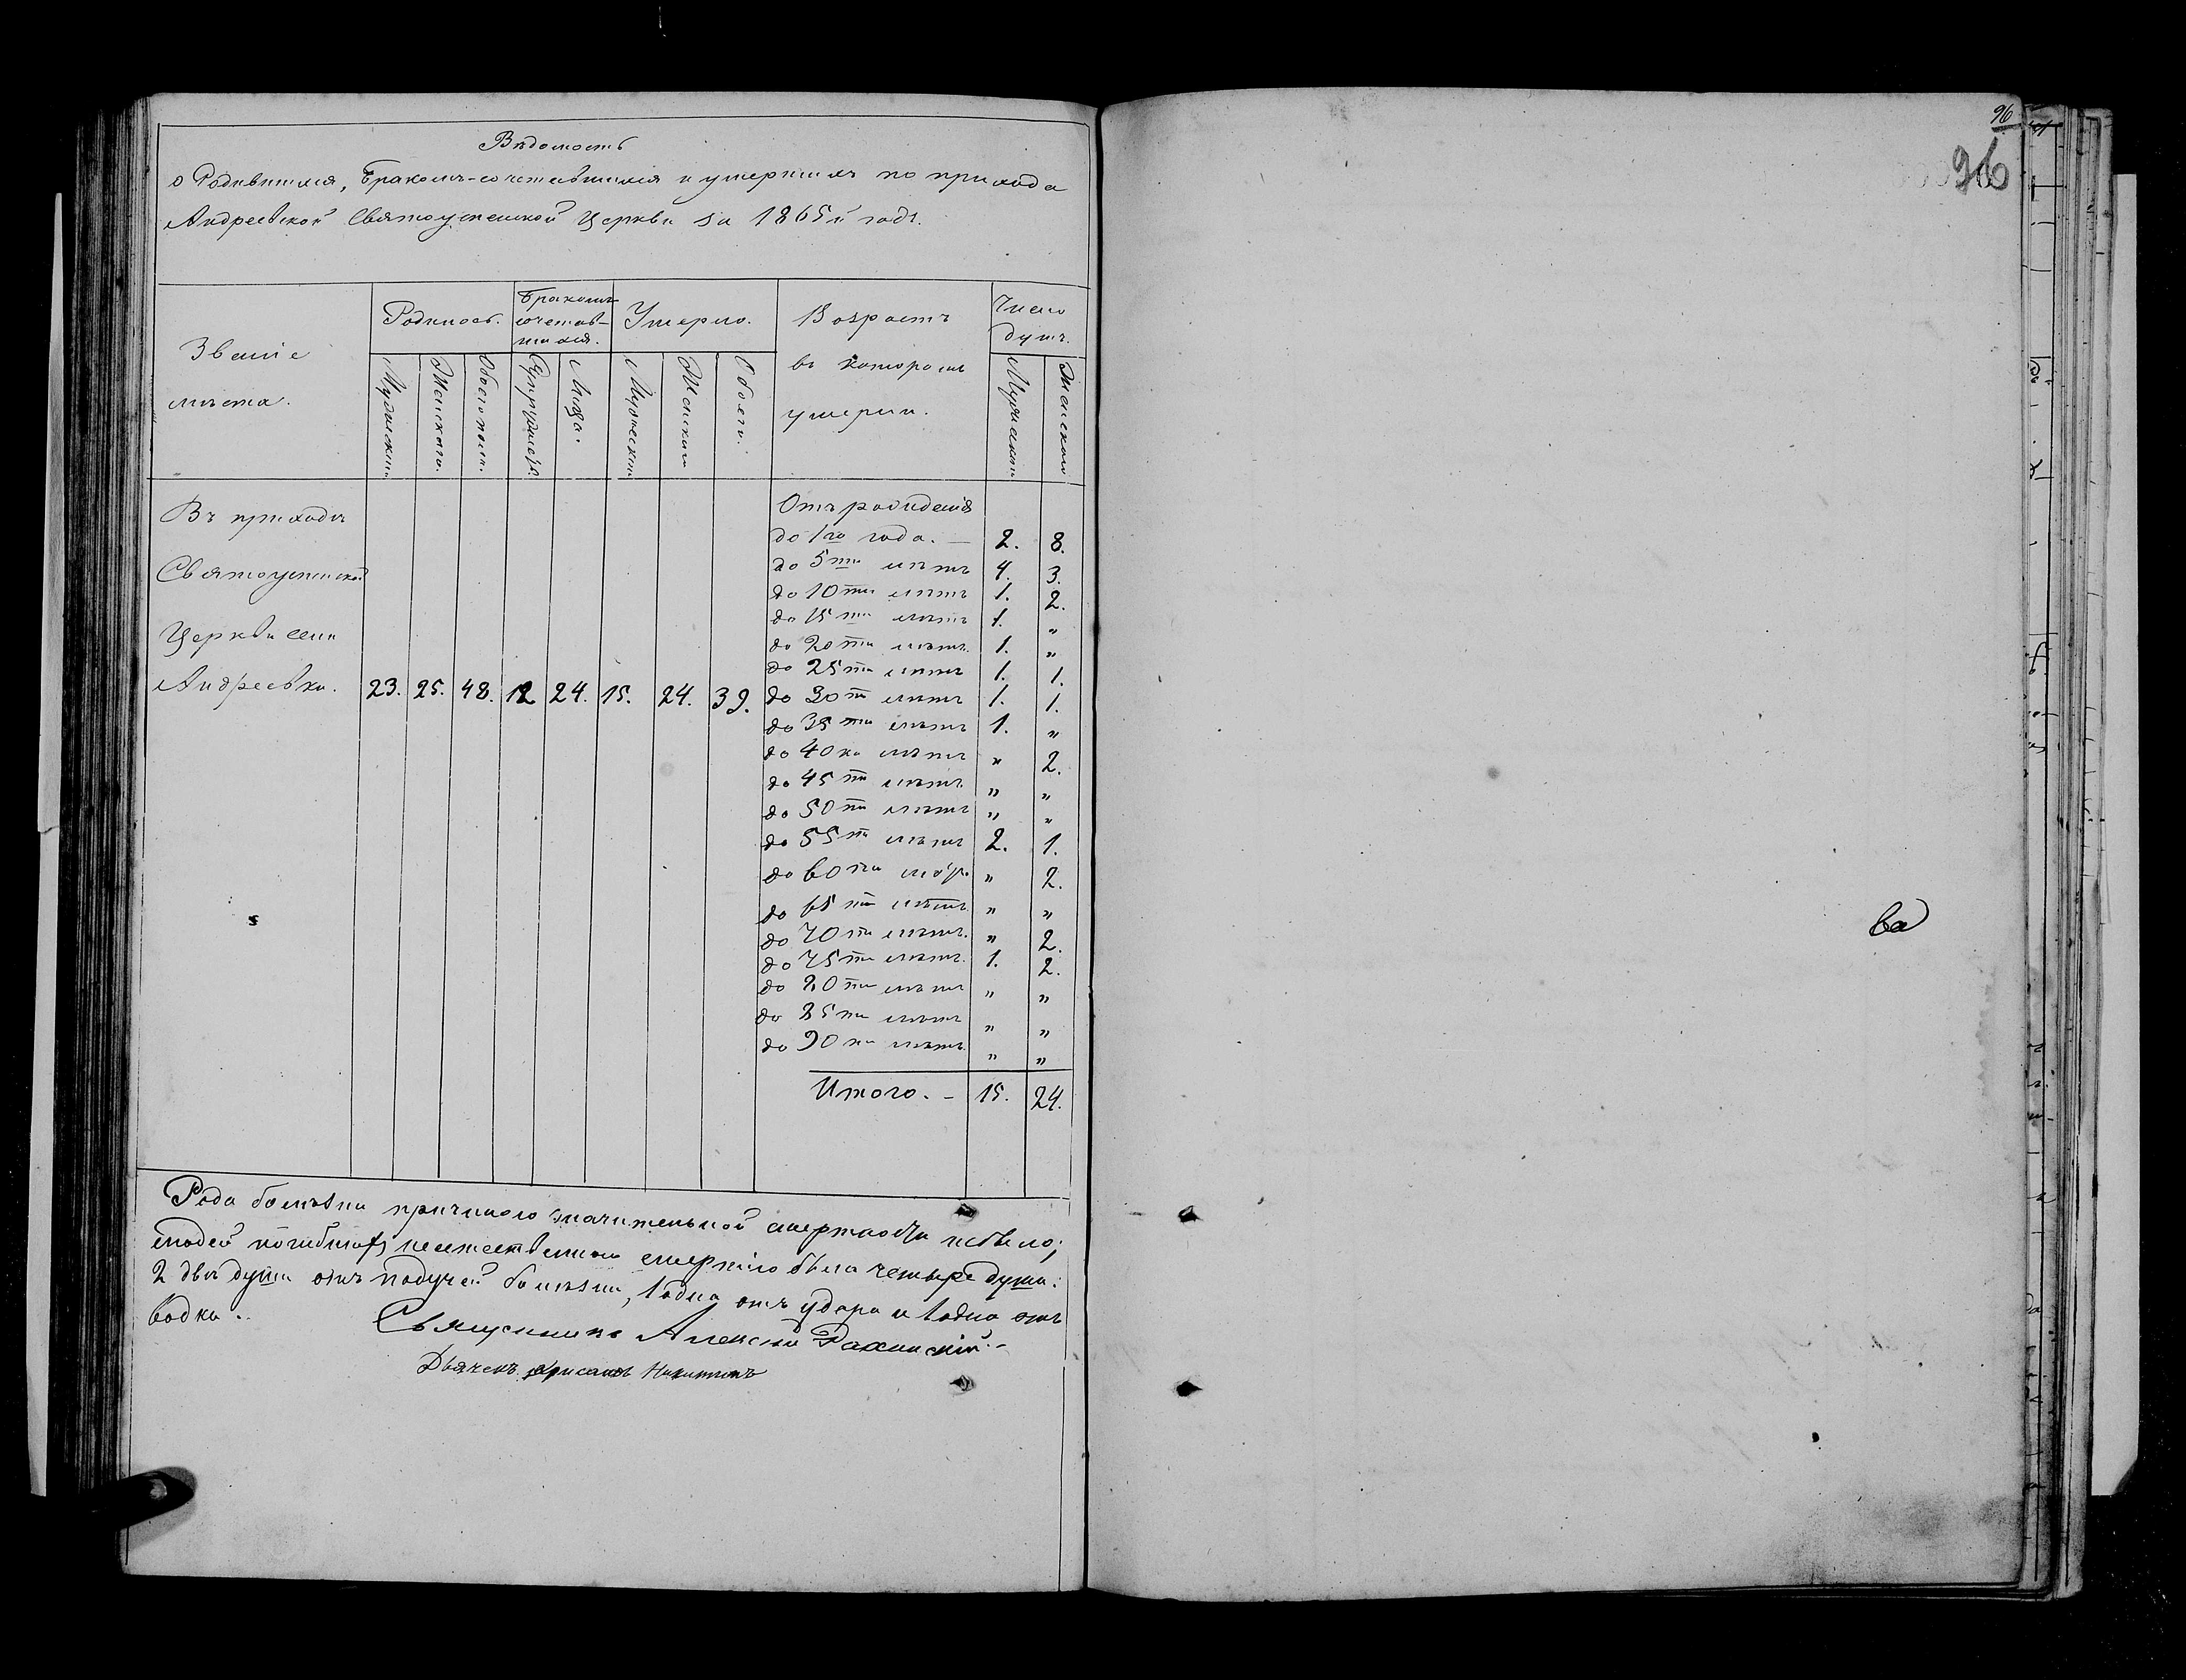 Вѣдомость
о Родившихся, Бракомъ-сочетавшихся и умершихъ по приходу
Андреевской Святоуспенской Церкви за 1865й годъ.
Званіе мѣста. | Родилось. | Бракомъ-сочетавшихся. | Умерло. | Возрастъ въ которомъ умерли. | Число душъ.
Мужескаго | Женскаго. | Обоего пола. | Супружествъ. | Лица. | Мужескаго | Женскаго | Обоего. | Мужескаго | Женскаго
Въ приходѣ
Святоуспенской
Церкви села
Андреевки. 23. 25. 48. 12 24. 15. 24. 39.
Отъ рожденія
до 1го года. — 2. 8.
до 5ти лѣтъ 4. 3.
до 10ти лѣтъ 1. 2.
до 15ти лѣтъ 1. „
до 20ти лѣтъ. 1. „
до 25ти лѣтъ 1. 1.
до 30ти лѣтъ 1. 1.
до 35ти лѣтъ 1. „
до 40ка лѣтъ „ 2.
до 45ти лѣтъ „ „
до 50ти лѣтъ „ „
до 55ти лѣтъ 2. 1.
до 60ти „ 2.
до 65ти лѣтъ. „ „
до 70ти лѣтъ. „ 2.
до 75ти лѣтъ. 1. 2.
до 80ти лѣтъ „ „
до 85ти лѣтъ „ „
до 90ти лѣтъ. „ „
Итого. - 15. 24.
Рода болѣзни причиною значительной смертности небыло;
людей погибшихъ неестественною смертію было четыре души:
2 двѣ души отъ падучей болѣзни, 1 одна отъ удара и 1 одна отъ
водки.
Священникъ Алексій
Дьячекъ Никитинъ
96
96